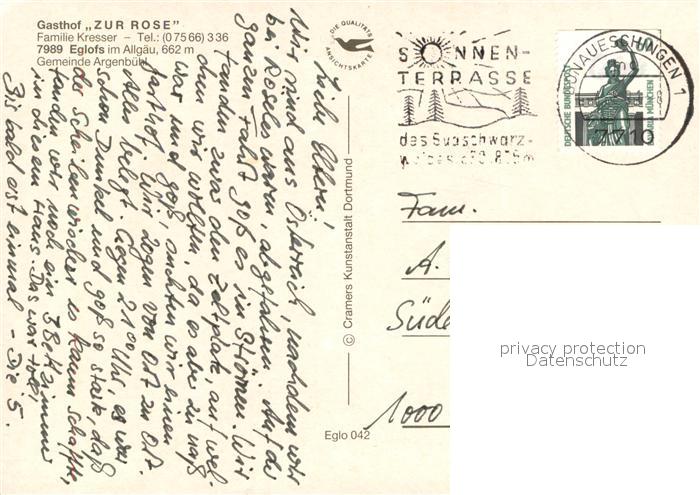 Gasthof „ZUR ROSE"
Familie Kresser – Tel.: (0 75 66) 3 36
7989 Eglofs im Allgäu, 662 m
Gemeinde Argenbühl
DIE QUALITÄTS
ANSICHTSKARTE
Liebe Eltern,
Wir sind aus Österreich, nachdem wir
bei Roses waren, abgefahren. Auf der
ganzen Fahrt goß es in Strömen. Wir
fanden zwar den Zeltplatz, auf wel-
chen wir wollten, da es aber zu naß
war und goß, suchten wir einen
Gasthof. Wir zogen von Ort zu Ort
Alle belegt. Gegen 21 00 Uhr, es war
schon Dunkel und goß so stark, daß
der Scheibenwischer es kaum schaffte,
fanden wir noch ein 3 Bettzimmer
in diesem Haus. Das war toll,
Bis bald erst einmal – Die 5.
© Cramers Kunstanstalt Dortmund
Eglo 042
SONNEN-
TERRASSE
des Südschwarz-
waldes
DONAUESCHINGEN 1
7710
DEUTSCHE BUNDESPOST
BAVARIA MÜNCHEN
Fam.
A.
Süde
1000
privacy protection
Datenschutz